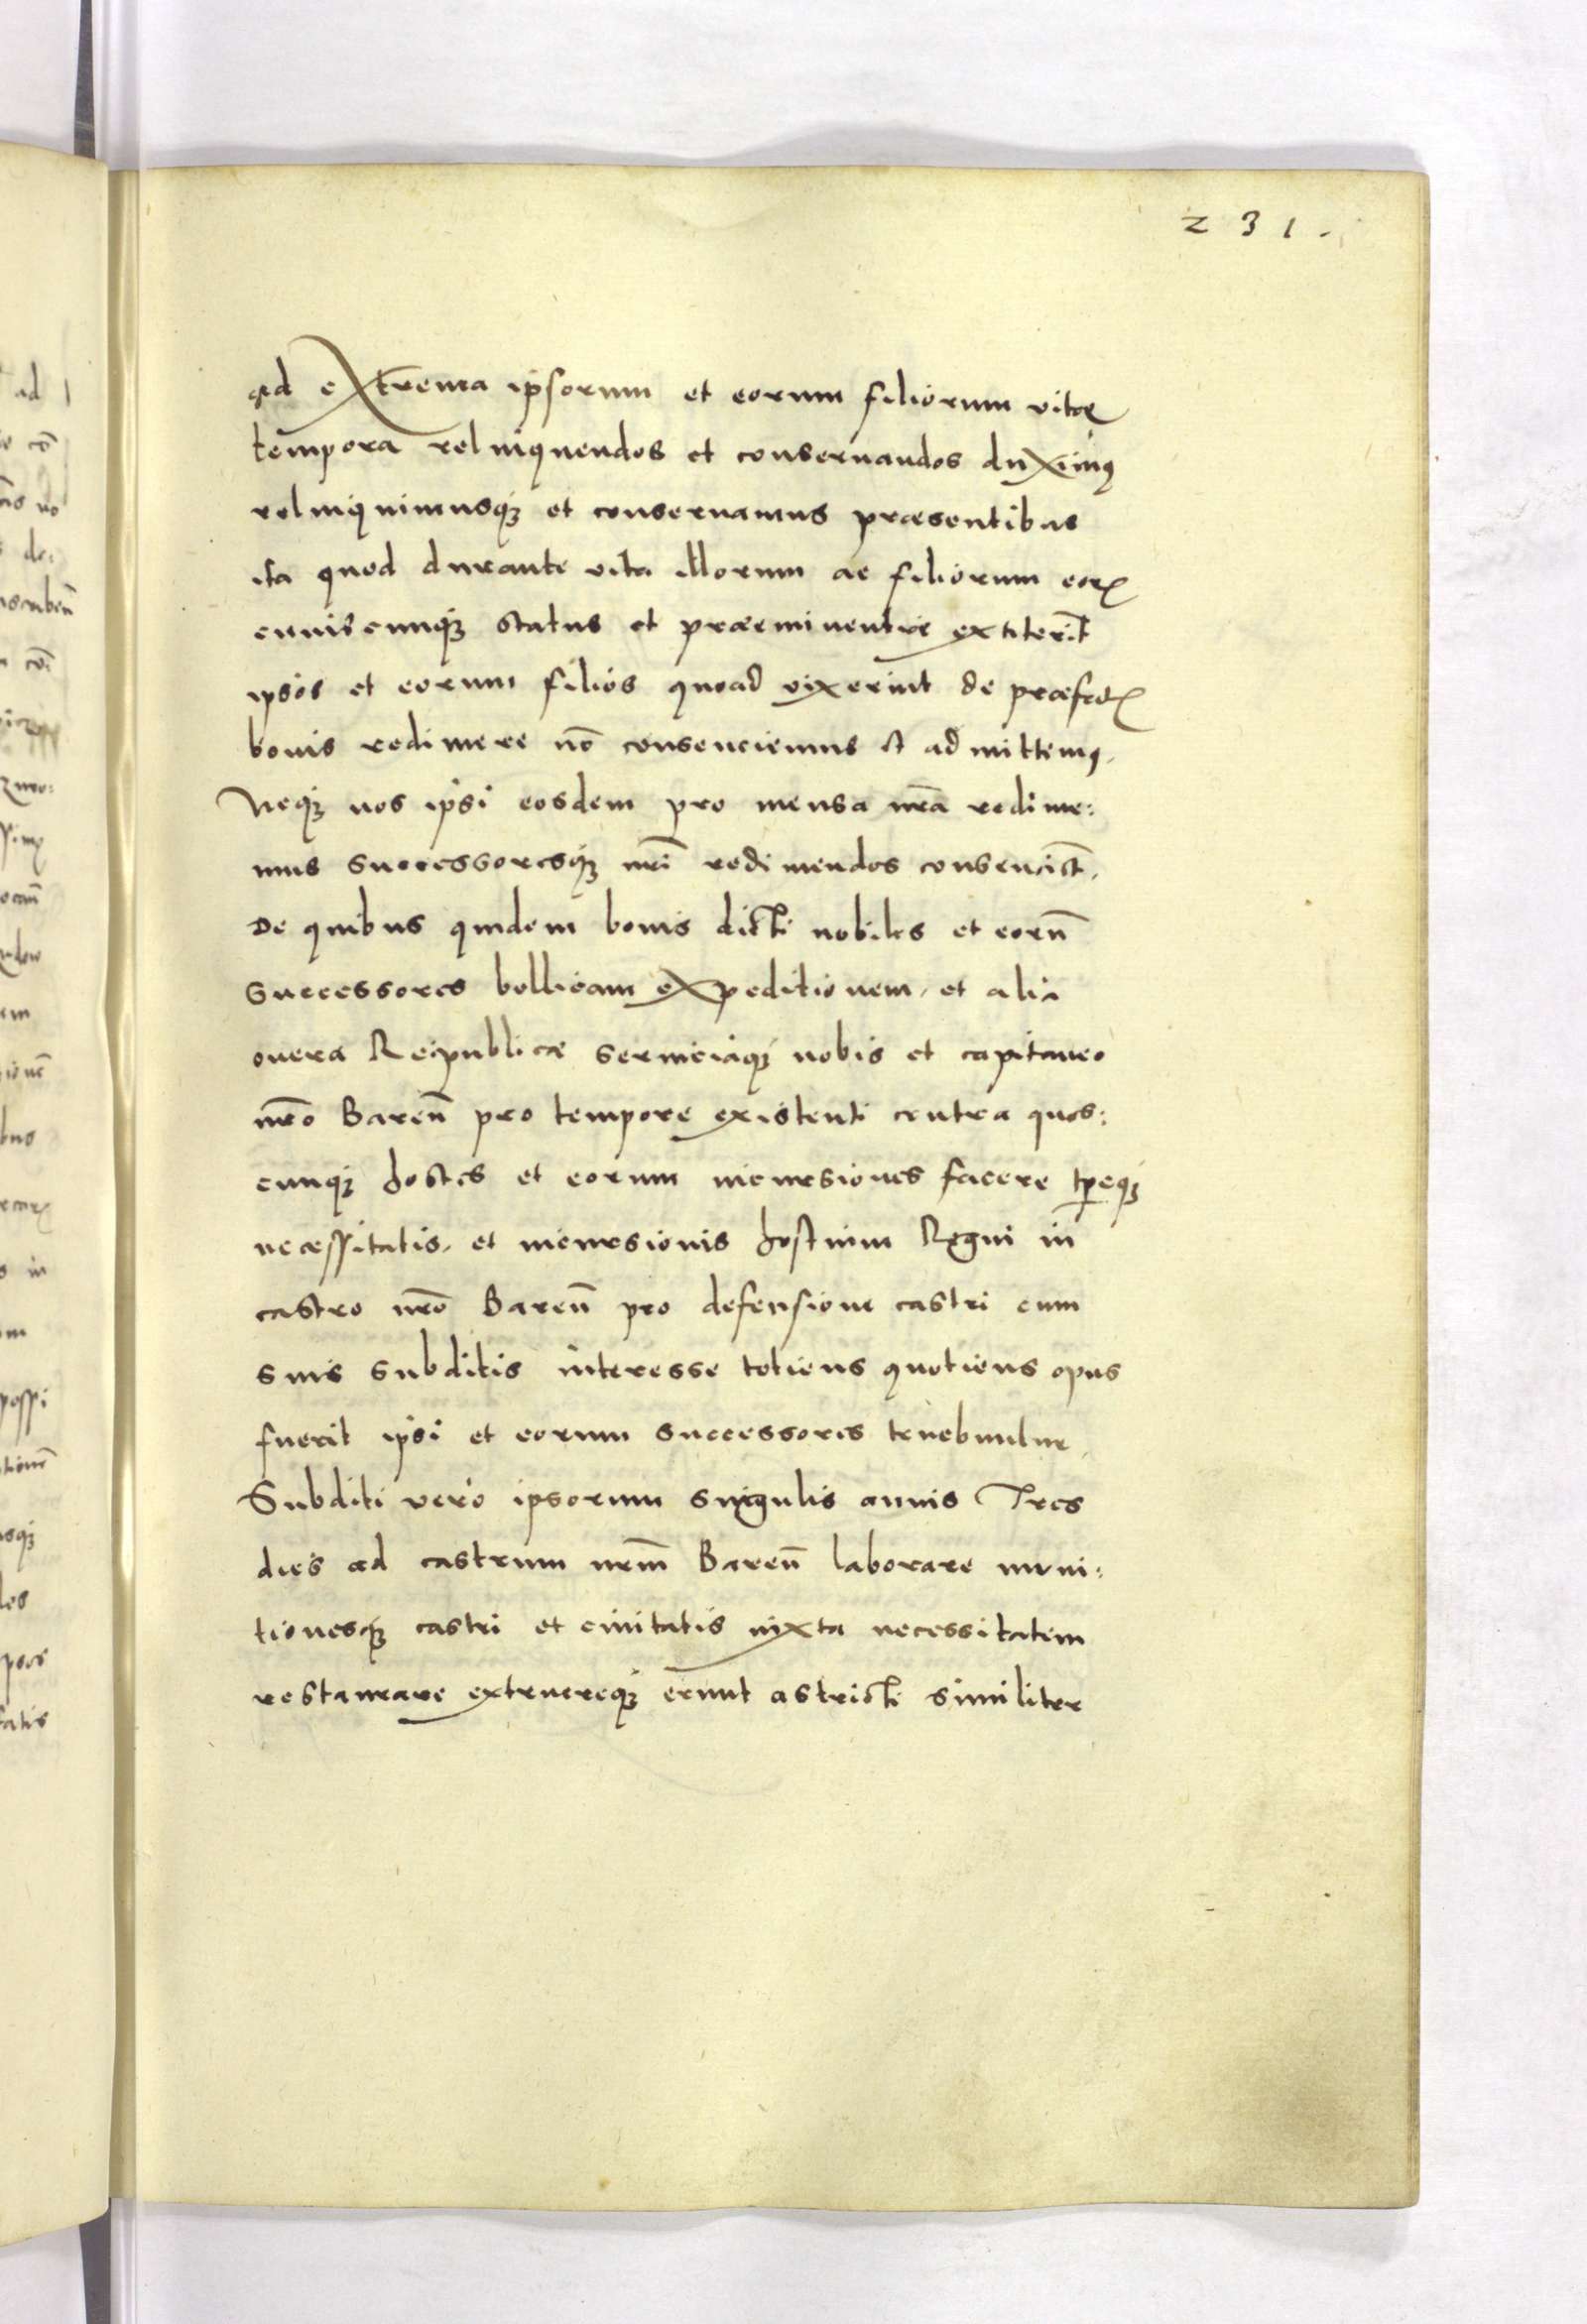 231.
ad extrema ipsorum et eorum filiorum vitæ
tempora relinquendos et conservandos duximꝰ
relinquimusqꝫ et conservamus præsentibus
ita quod durante vita illorum ac filiorum eorꝝ
cuiuscunqꝫ status et præeminentiæ extiterĩt
ipsos et eorum filios quoad vixerint de præfatꝭ
bonis redimere nõ consenciemus et admittemꝰ.
Neqꝫ nos ipsi eosdem pro mensa nr̃a redime:
mus successoresqꝫ nr̃i redimendos consencĩet.
De quibus quidem bonis dicti nobiles et eorũ
successores bellicam expeditionem, et alia
onera Reipublicæ serviciaqꝫ nobis et capitaneo
nr̃o Bareñ pro tempore existenti contra quos:
cunqꝫ hostes et eorum incursiones facere tꝑeqꝫ
necessitatis, et incursionis hostium Regni in
castro nr̃o Bareñ pro defensione castri cum
suis subditis interesse totiens quotiens opus
fuerit ipsi et eorum successores tenebuntur.
Subditi vero ipsorum singulis annis Tres
dies ad castrum nr̃m Bareñ laborare muni:
tionesqꝫ castri et civitatis iuxta necessitatem
restaurare extruereqꝫ erunt astricti similiter